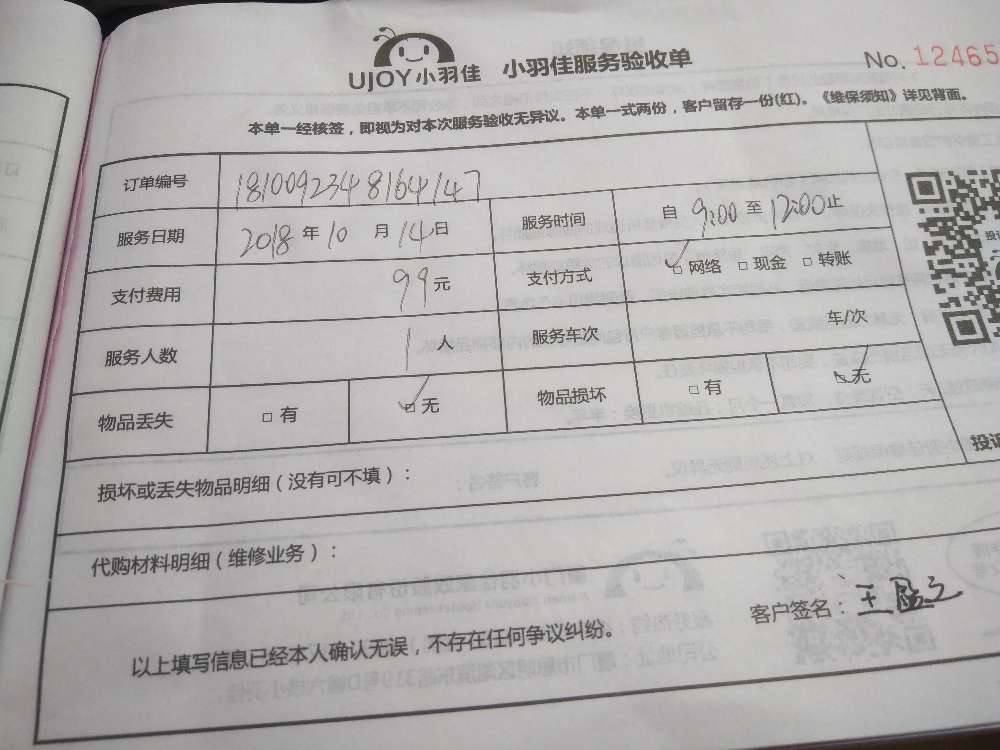 UJOY小羽佳 小羽佳服务验收单 No. 12465
本单一经核签，即视为对本次服务验收无异议。本单一式两份，客户留存一份(红)。《维保须知》详见背面。
订单编号 1810092348164147
服务日期 2018年10月14日 服务时间 自9:00至12:00止
支付费用 99元 支付方式 □网络 □现金 □转账
服务人数 1人 服务车次 车/次
物品丢失 □有 □无 物品损坏 □有 □无
投诉
损坏或丢失物品明细（没有可不填）：
代购材料明细（维修业务）：
客户签名：王
以上填写信息已经本人确认无误，不存在任何争议纠纷。